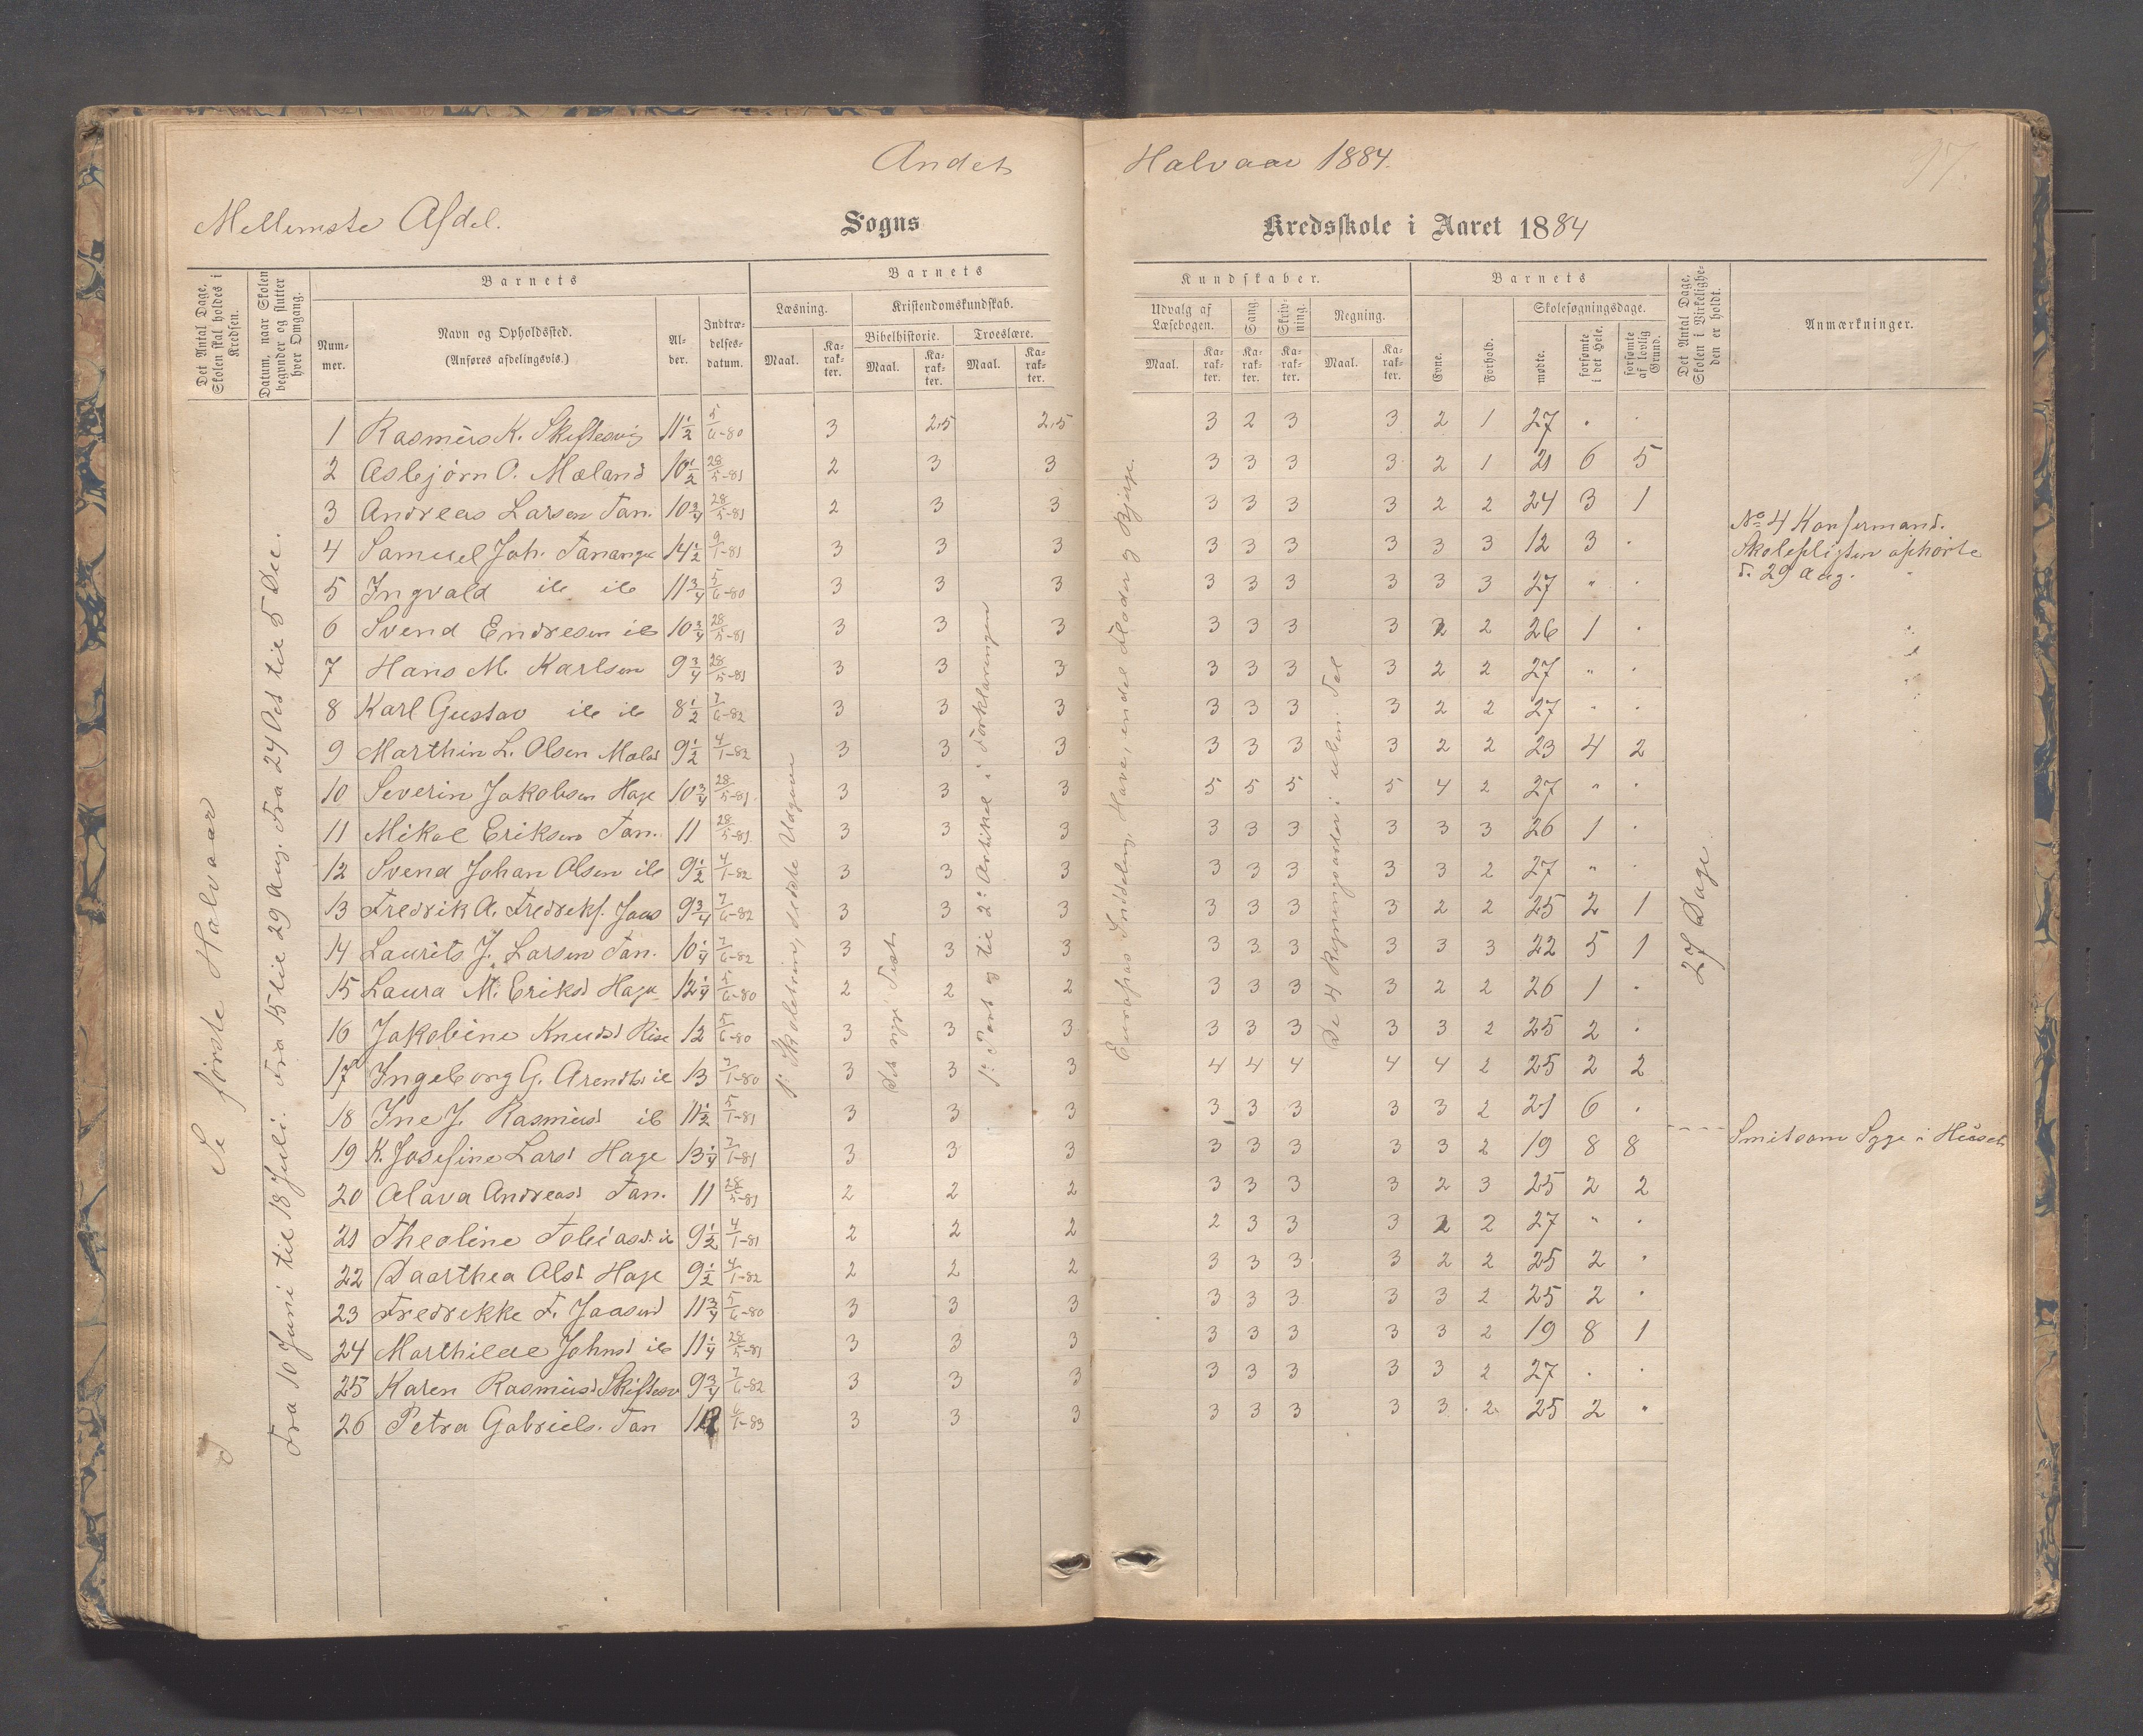 Andet Halvaar 1884.
Mellemste Afdel. Sogns Kredsskole i Aaret 1884
Det Antal Dage, Skolen skal holdes i Kredsen.
Datum, naar Skolen begynder og slutter hver Omgang.
Barnets
Nummer.
Navn og Opholdssted.
(Anføres afdelingsvis.)
Alder.
Indtrædelsesdatum.
Barnets Kundskaber.
Læsning.
Kristendomskundskab.
Bibelhistorie.
Troeslære.
Maal. Karakter. Maal. Karakter. Maal. Karakter.
Udvalg af Læsebogen.
Sang.
Skrivning.
Regning.
Maal. Karakter. Karakter. Karakter. Maal. Karakter.
Barnets
Evne.
Forhold.
Skolesøgningsdage.
mødte.
forsømte i det Hele.
forsømte af lovlig Grund.
Det Antal Dage, Skolen i Virkeligheden er holdt.
Anmærkninger.
Se første Halvaar
Fra 10 Juni til 18 Juli. Fra 15 til 29 Aug. Fra 24 Oct til 5 Dec.
1 Rasmus K. Skiftesvig 11 1/2 5/6-80 3 2,5 2,5 3 2 3 3 2 1 27 . .
2 Asbjørn O. Mæland 10 1/2 28/5-81 2 3 3 3 3 3 3 2 1 21 6 5
3 Andreas Larsen Tan. 10 3/4 28/5-81 2 3 3 3 3 3 3 2 2 24 3 1
4 Samuel Joh. Tananger 14 1/2 9/1-81 3 3 3 3 3 3 3 3 3 12 3 .
5 Ingvald ib ib 11 3/4 5/6-80 3 3 3 3 3 3 3 3 3 27 " .
6 Svend Endresen ib 10 3/4 28/5-81 3 3 3 3 3 3 3 2 2 26 1 .
7 Hans M. Karlsen 9 3/4 28/5-81 3 3 3 3 3 3 3 2 2 27 " .
8 Karl Gustav ib ib 8 1/2 7/6-82 3 3 3 3 3 3 3 2 2 27 " .
9 Marthin L. Olsen Mæld 9 1/2 4/1-82 3 3 3 3 3 3 3 2 2 23 4 2
10 Severin Jakobsen Hage 10 3/4 28/5-81 3 3 3 5 5 5 5 4 2 27 " .
11 Mikal Eriksen Tan. 11 28/5-81 3 3 3 3 3 3 3 3 3 26 1 .
12 Svend Johan Olsen ib 9 1/2 4/1-82 3 3 3 3 3 3 3 3 2 27 " .
13 Fredrik A. Fredriks. Jaas 9 3/4 7/6-82 3 3 3 3 3 3 3 2 2 25 2 1
14 Laurits J. Larsen Tan. 10 1/4 7/6-82 3 3 3 3 3 3 3 3 3 22 5 1
15 Laura M. Eriksd Hage 12 1/4 5/6-80 2 2 2 3 3 3 3 2 2 26 1 .
16 Jakobine Knudsd Risa 12 5/6-80 3 3 3 3 3 3 3 3 2 25 2 .
17 Ingeborg G. Arendts ib 13 7/1-80 3 3 3 4 4 4 4 4 2 25 2 2
18 Ine J. Rasmusd ib 11 1/2 5/1-81 3 3 3 3 3 3 3 3 2 21 6 .
19 K. Josefine Larsd Hage 13 1/4 7/1-81 3 3 3 3 3 3 3 3 2 19 8 8
20 Olava Andreasd Tan. 11 28/5-81 2 2 2 3 3 3 3 2 3 25 2 2
21 Theoline Tobiasd. ib 9 1/2 4/1-81 2 2 2 2 3 3 3 2 2 27 " .
22 Daarthea Olsd Hage 9 1/2 4/1-82 2 2 2 3 3 3 3 2 2 25 2 .
23 Fredrekke F. Jaasund 11 3/4 5/6-80 3 3 3 3 3 3 3 3 2 25 2 .
24 Marthilde Johnsd ib 11 1/4 28/5-81 3 3 3 3 3 3 3 3 2 19 8 1
25 Karen Rasmusd Skiftesv 9 3/4 7/6-82 3 3 3 3 3 3 3 3 2 27 . .
26 Petra Gabriels. Tan 6/1-83 3 3 3 3 3 3 3 3 2 25 2 .
1ste Skoletrin, sidste Udgave
Det nye Test.
1ste Part og til 2den Artikel i Forklaringen
Europas Inddeling, Have, en del Floder og Bjerge.
De 4 Regningsarter i uben. Tal
27 Dage
No 4 Konfermand.
Skolepligten ophørte
d. 29 Aug.
Smitsom Syge i Huset